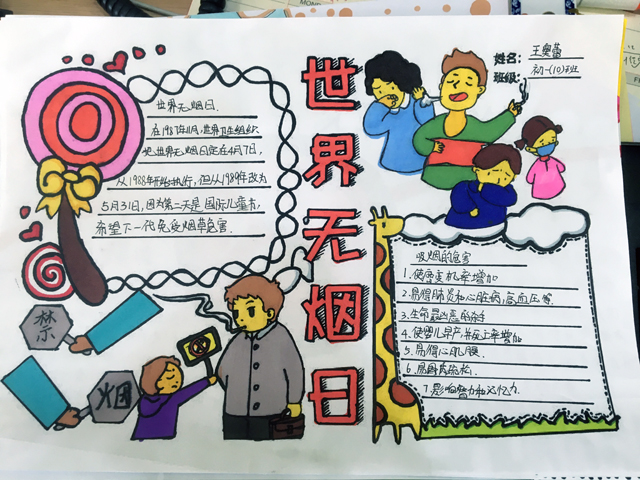 世界无烟日
姓名：王奥蕾
班级：初一(10)班
世界无烟日.
在1987年11月,世界卫生组织
把世界无烟日定在4月7日,
从1988年开始执行,但从1989年改为
5月31日,因为第二天是国际儿童节,
希望下一代免受烟草危害.
禁
烟
吸烟的危害
1.使患支机率增加
2.易得肺炎和心脏病,高血压等.
3.生命最凶恶的杀手
4.使婴儿早产,并死亡率增加
5.易得心肌
6.易骨质疏松
7.影响智力和记忆力.